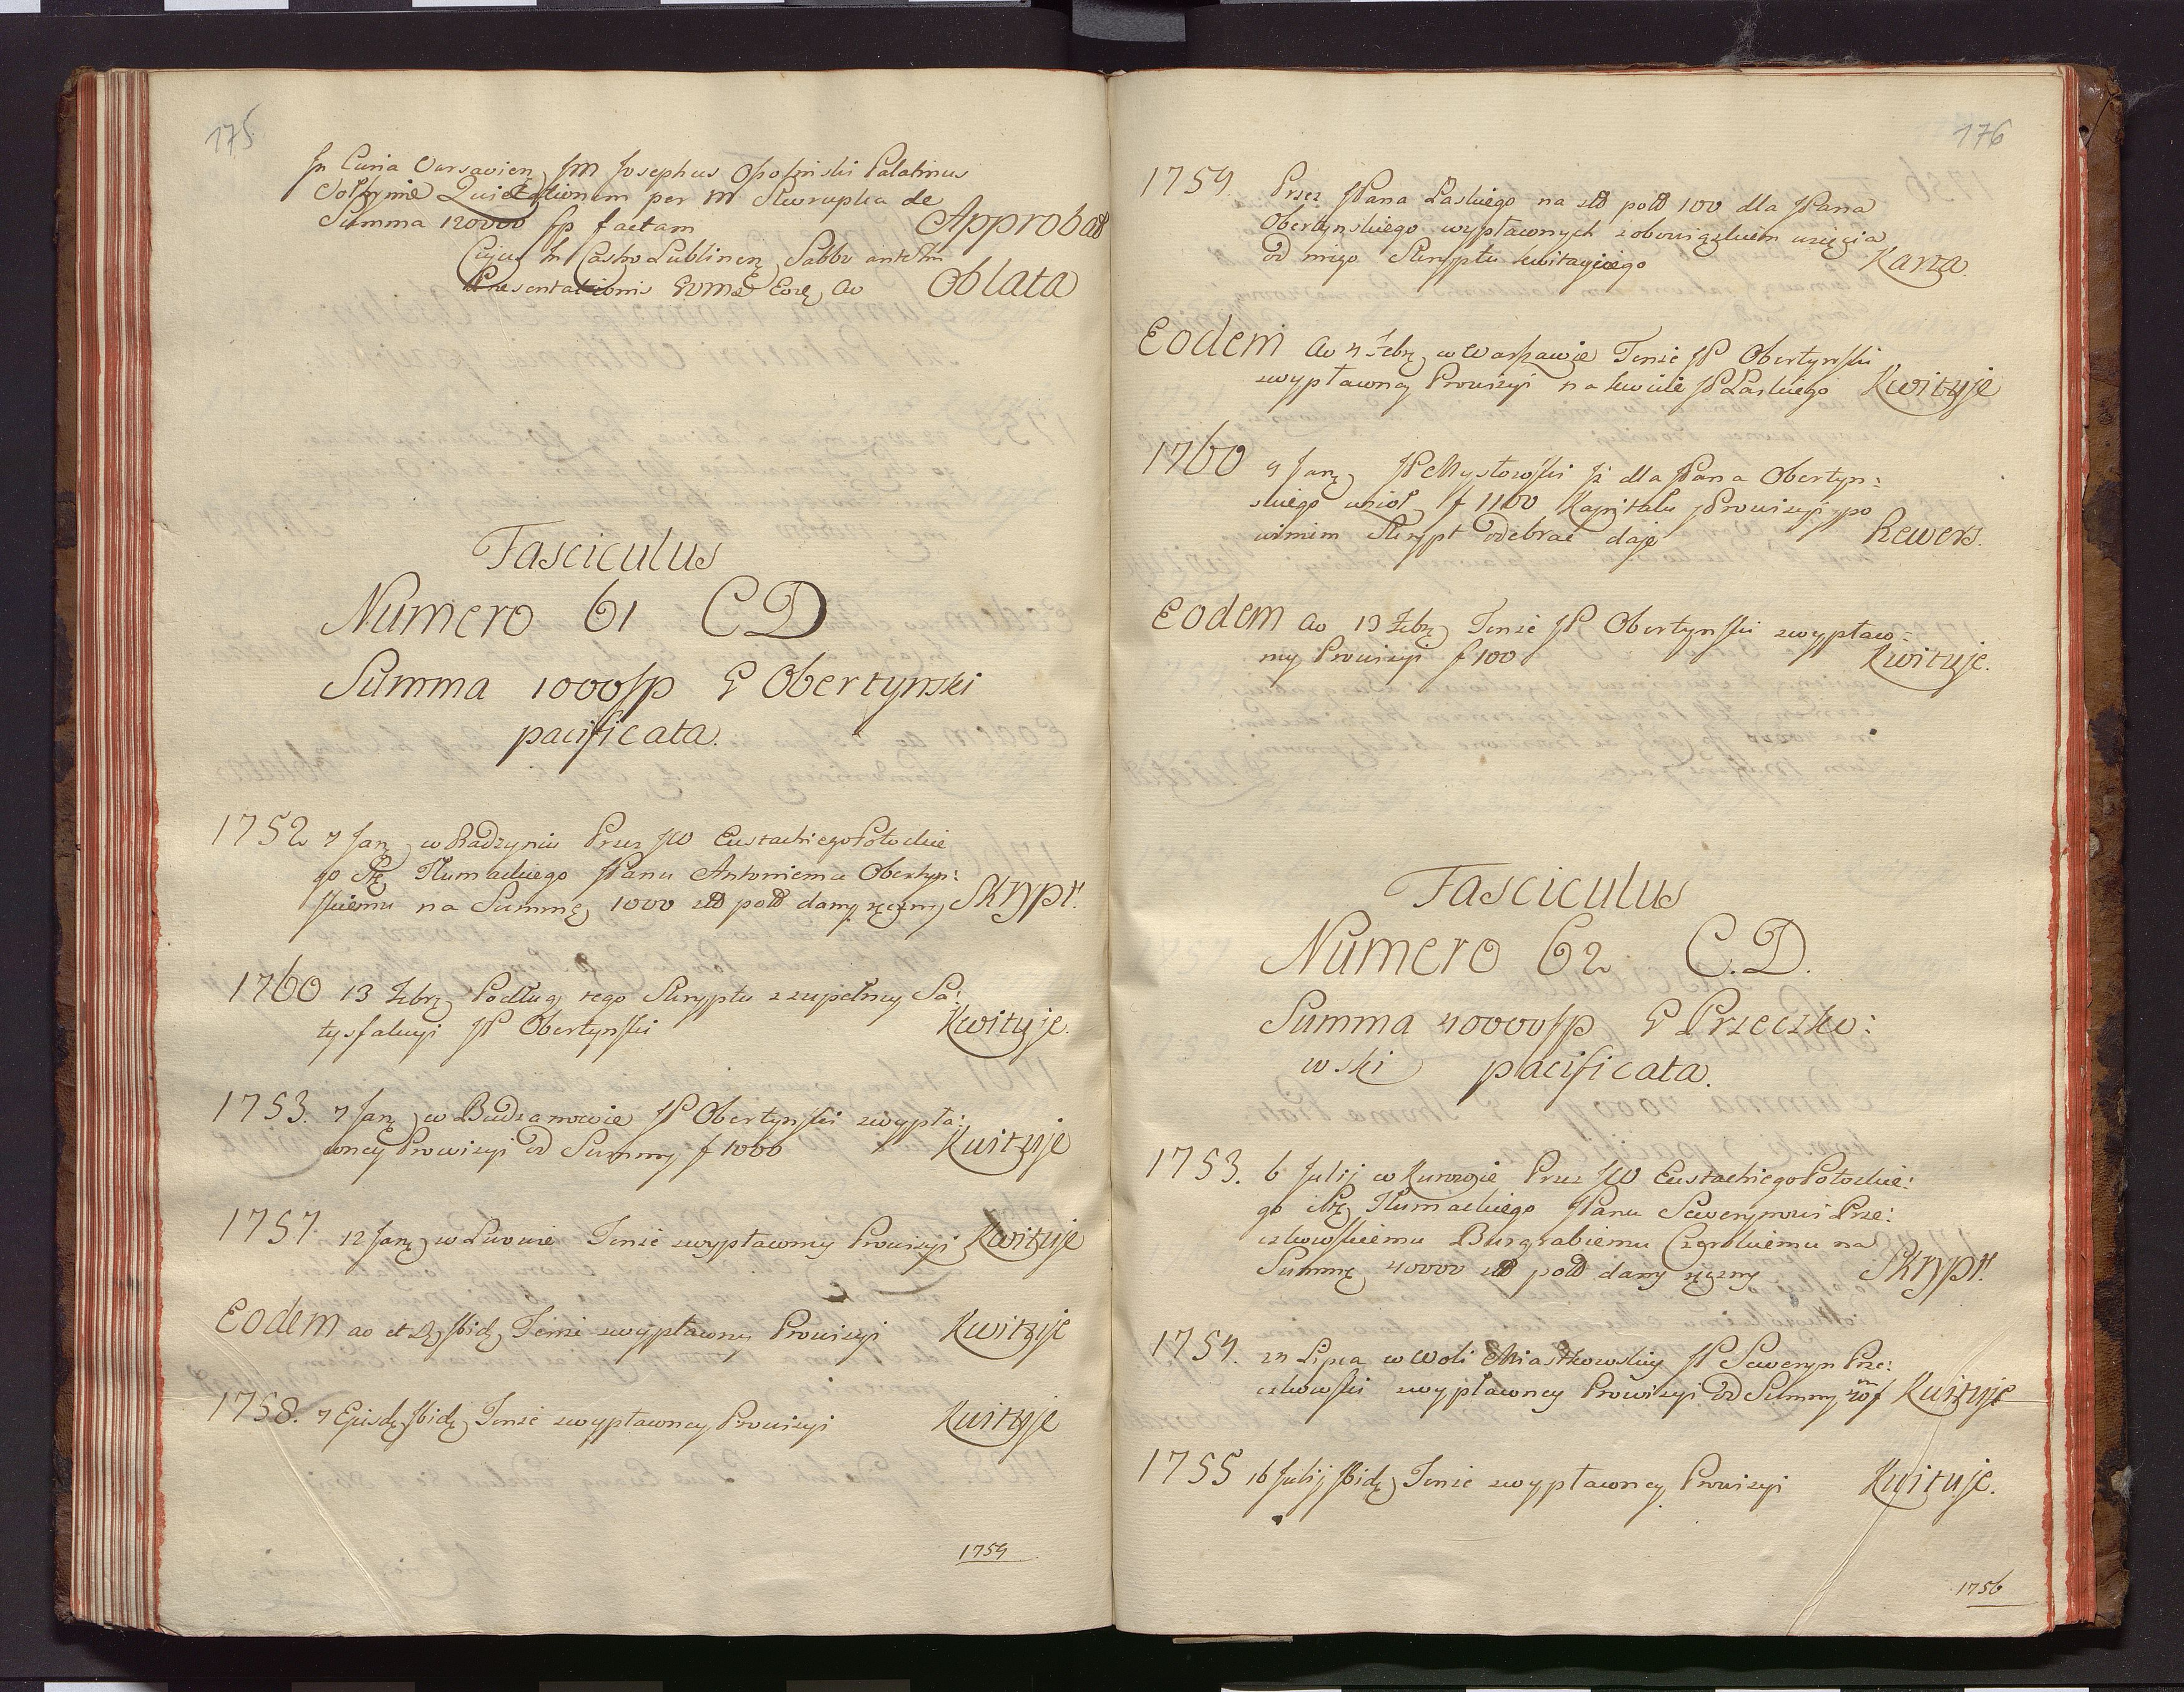 175
In Curia Varsavien JM Josephus Opoliński Palatinus
Volhyniæ Quietationem per M Skurupka de
Summa 120000 fp factam Approbat
Cujus In Castro Lublinen Sabbo ante Fm
Præsentationis BVMæ Eorę Ao Oblata
Fasciculus
Numero 61 CD
Summa 1000 fp G Obertynski
pacificata.
1752 7 Janę w Radzyniu Przez JW Eustachiego Potockie
go Stę Tłumackiego JPanu Antoniemu Obertyn:
skiemu na Summę 1000 złł poll dany ręczny Skrypt.
1760 13 Febrę Podług tego Skryptu z zupełney Sa:
tysfakcyi JP Obertynski Kwituje.
1753. 7 Janę w Budzanowie JP Obertynski z wypła:
coney Prowizyi od Summy f 1000 Kwituje
1757. 12 Janę w Lwowie Tenże z wypłaconey Prowizyi Kwituje
Eodem ao et Dę Ibidę Tenże z wypłaconey Prowizyi Kwituje
1758. 7 Ejusdę Ibidę Tenże z wypłaconey Prowizyi Kwituje
1759
176
1759. Przez JPana Laskiego na złł poll 100 dla JPana
Obertynskiego wypłaconych z obowiązkiem wzięcia
od niego Skryptu kwitującego Karta.
Eodem Ao 4 Febrę w Warszawie Tenże JP Obertynski
z wypłaconey Prowizyi na kwicie JP Laskiego Kwituje
1760 9 Janę JP Mysłowski iż dla JPana Obertyn:
skiego wzioł f 1100 Kapitału y Prowizyi y po
winien Skrypt odebrać daje Rewers.
Eodem Ao 13 Febrę Tenże JP Obertynski z wypłaco:
ney Prowizyi f 100 Kwituje.
Fasciculus
Numero 62 C.D.
Summa 40000 fp G Przeczko:
wski pacificata.
1753. 6 Julij w Kurowie Przez JW Eustachiego Potockie:
go Stę Tłumackiego JPanu Sewerynowi Prze:
czkowskiemu Burgrabiemu Czerskiemu na
Summę 40000 złł poll dany ręczny Skrypt.
1754. 24 Lipca w Woli Miastkowskiey JP Seweryn Prze:
czkowski z wypłaconey Prowizyi od Summy 40 m f Kwituje
1755 16 Julij Ibidę Tenże z wypłaconey Prowizyi Kwituje.
1756